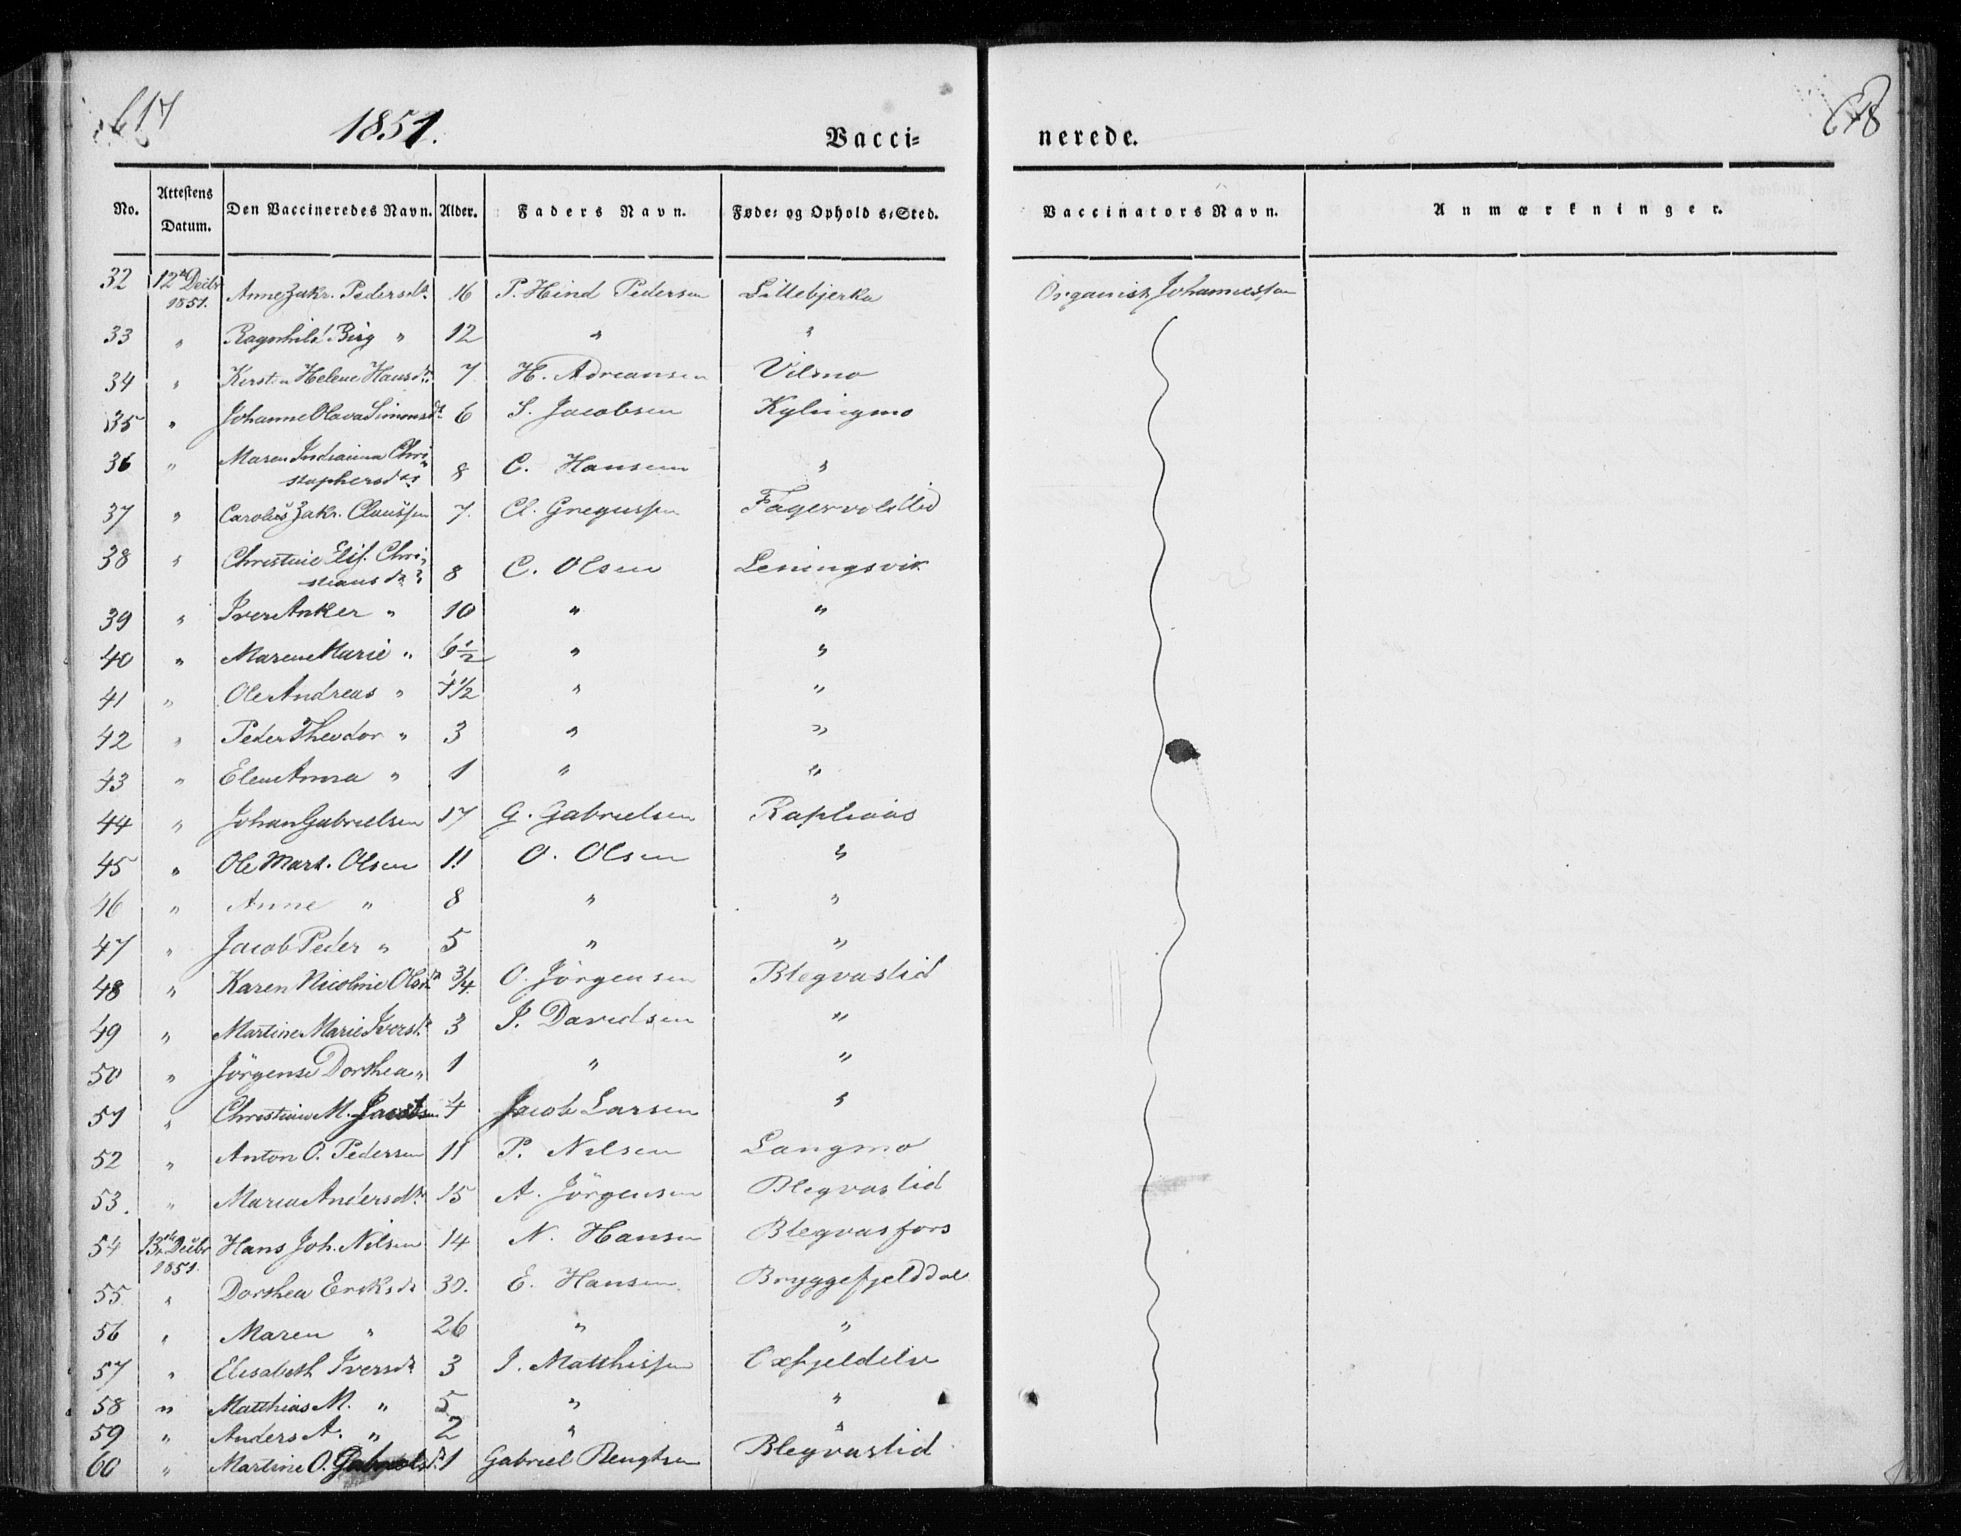 617
1851.
Vacci=
nerede.
618
No. Attestens Datum. Den Vaccineredes Navn. Alder. Faders Navn. Føde= og Opholds=Sted. Vaccinators Navn. Anmærkninger.
32 12te Decbr 1851. Anne Zakr. Pedersdtr 16 P. Hind Pedersen Lillebjerka Organist Johannessen
33 " Ragnhild Birg " 12 " "
34 " Kirsten Helene Hansdtr 7 H. Adreansen Vilmo
35 " Johanne Olava Simonsdtr 6 S. Jacobsen Kylingmo
36 " Maren Indianna Chri=
stophersdtr 8 C. Hansen "
37 " Carolus Zakr. Claussen 7. Cl. Gregussen Fagervolllid
38 " Christine Elis. Chri=
stiansdtr 8 C. Olsen Leningsvik
39 " Iver Anker " 10 " "
40 " Marene Marie " 6½ " "
41 " Ole Andreas " 4½ " "
42 " Peder Theodor " 3 " "
43 " Elen Anna " 1 " "
44 " Johan Gabrielsen 17 G. Gabrielsen Rapliaas
45 " Ole Mart. Olsen 11 O. Olsen "
46 " Anne " 8 " "
47 " Jacob Peder " 5 " "
48 " Karen Nicoline Olsdtr ¾ O. Jörgensen Blegvaslid
49 " Martine Marie Iversdtr 3 I. Davidsen "
50 " Jörgense Dorthea " 1 " "
51 " Christine M. 4 Jacob Larsen "
52 " Anton O. Pedersen 11 P. Nilsen Langmo
53. " Maria Andersdtr 15 A. Jörgensen Blegvaslid
54 13de Decbr 1851. Hans Joh. Nilsen 14 N. Hansen Blegvasfors
55 " Dorthea Eriksdtr 30. E. Hansen Bryggefjelddal
56 " Maren " 26 " "
57 " Elisabeth Iversdtr 3 I. Matthissen Oxfjeldelv
58 " Matthias M. " 5 " "
59 " Anders A. " 2 " "
60 " Martine O. Gabrielsdtr 1 Gabriel Bengtsen Blegvaslid